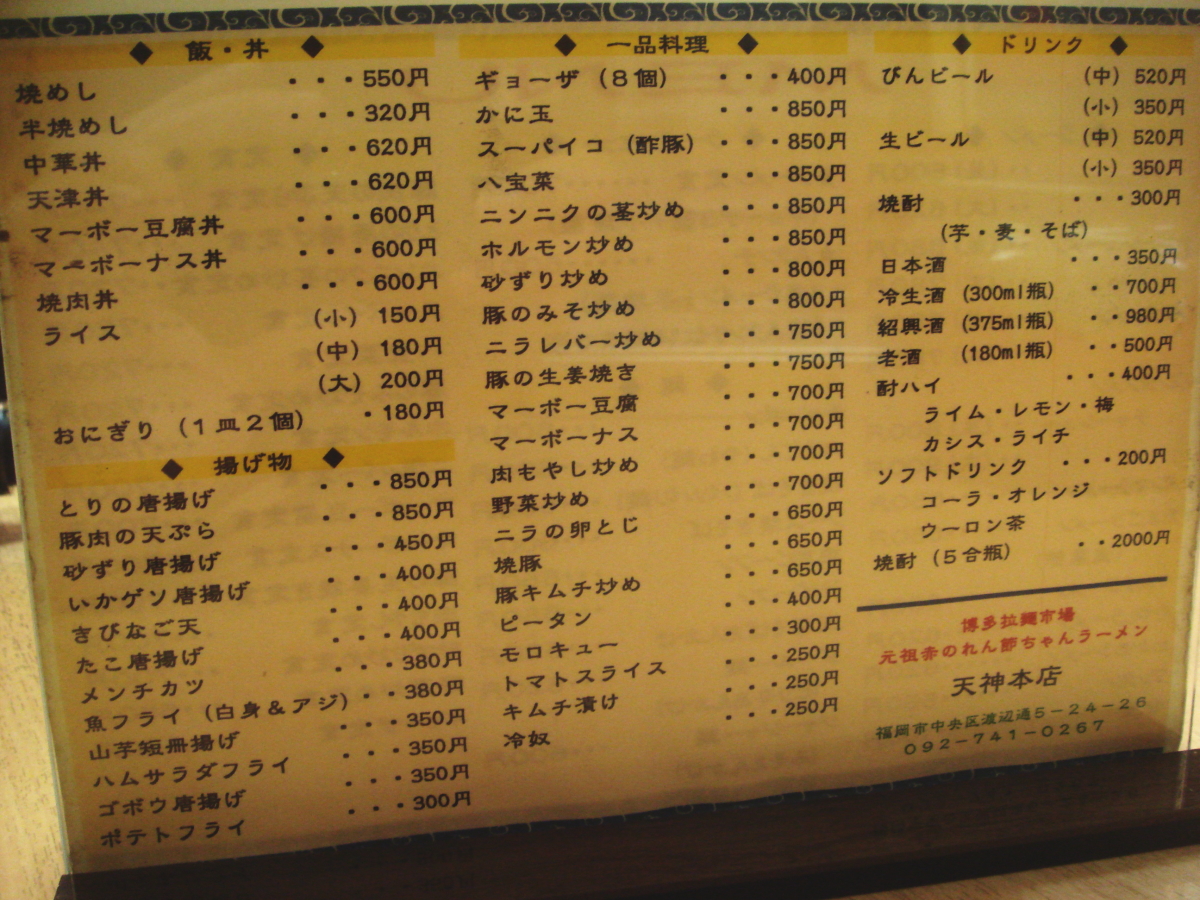 ◆ 飯・丼 ◆
焼めし ・・・550円
半焼めし ・・・320円
中華丼 ・・・620円
天津丼 ・・・620円
マーボー豆腐丼 ・・・600円
マーボーナス丼 ・・・600円
焼肉丼 ・・・600円
ライス (小) 150円
(中) 180円
(大) 200円
おにぎり (1皿2個) ・180円
◆ 揚げ物 ◆
とりの唐揚げ ・・・850円
豚肉の天ぷら ・・・850円
砂ずり唐揚げ ・・・450円
いかゲソ唐揚げ ・・・400円
きびなご天 ・・・400円
たこ唐揚げ ・・・400円
メンチカツ ・・・380円
魚フライ (白身&アジ) ・・・380円
山芋短冊揚げ ・・・350円
ハムサラダフライ ・・・350円
ゴボウ唐揚げ ・・・350円
ポテトフライ ・・・300円
◆ 一品料理 ◆
ギョーザ (8個) ・・・400円
かに玉 ・・・850円
スーパイコ (酢豚) ・・・850円
八宝菜 ・・・850円
ニンニクの茎炒め ・・・850円
ホルモン炒め ・・・850円
砂ずり炒め ・・・800円
豚のみそ炒め ・・・800円
ニラレバー炒め ・・・750円
豚の生姜焼き ・・・750円
マーボー豆腐 ・・・700円
マーボーナス ・・・700円
肉もやし炒め ・・・700円
野菜炒め ・・・700円
ニラの卵とじ ・・・650円
焼豚 ・・・650円
豚キムチ炒め ・・・650円
ピータン ・・・400円
モロキュー ・・・300円
トマトスライス ・・・250円
キムチ漬け ・・・250円
冷奴 ・・・250円
◆ ドリンク ◆
びんビール (中) 520円
(小) 350円
生ビール (中) 520円
(小) 350円
焼酎 ・・・300円
(芋・麦・そば)
日本酒 ・・・350円
冷生酒 (300ml瓶) ・・700円
紹興酒 (375ml瓶) ・・980円
老酒 (180ml瓶) ・・500円
酎ハイ ・・・400円
ライム・レモン・梅
カシス・ライチ
ソフトドリンク ・・・200円
コーラ・オレンジ
ウーロン茶
焼酎 (5合瓶) ・・2000円
博多拉麺市場
元祖赤のれん節ちゃんラーメン
天神本店
福岡市中央区渡辺通5-24-26
092-741-0267